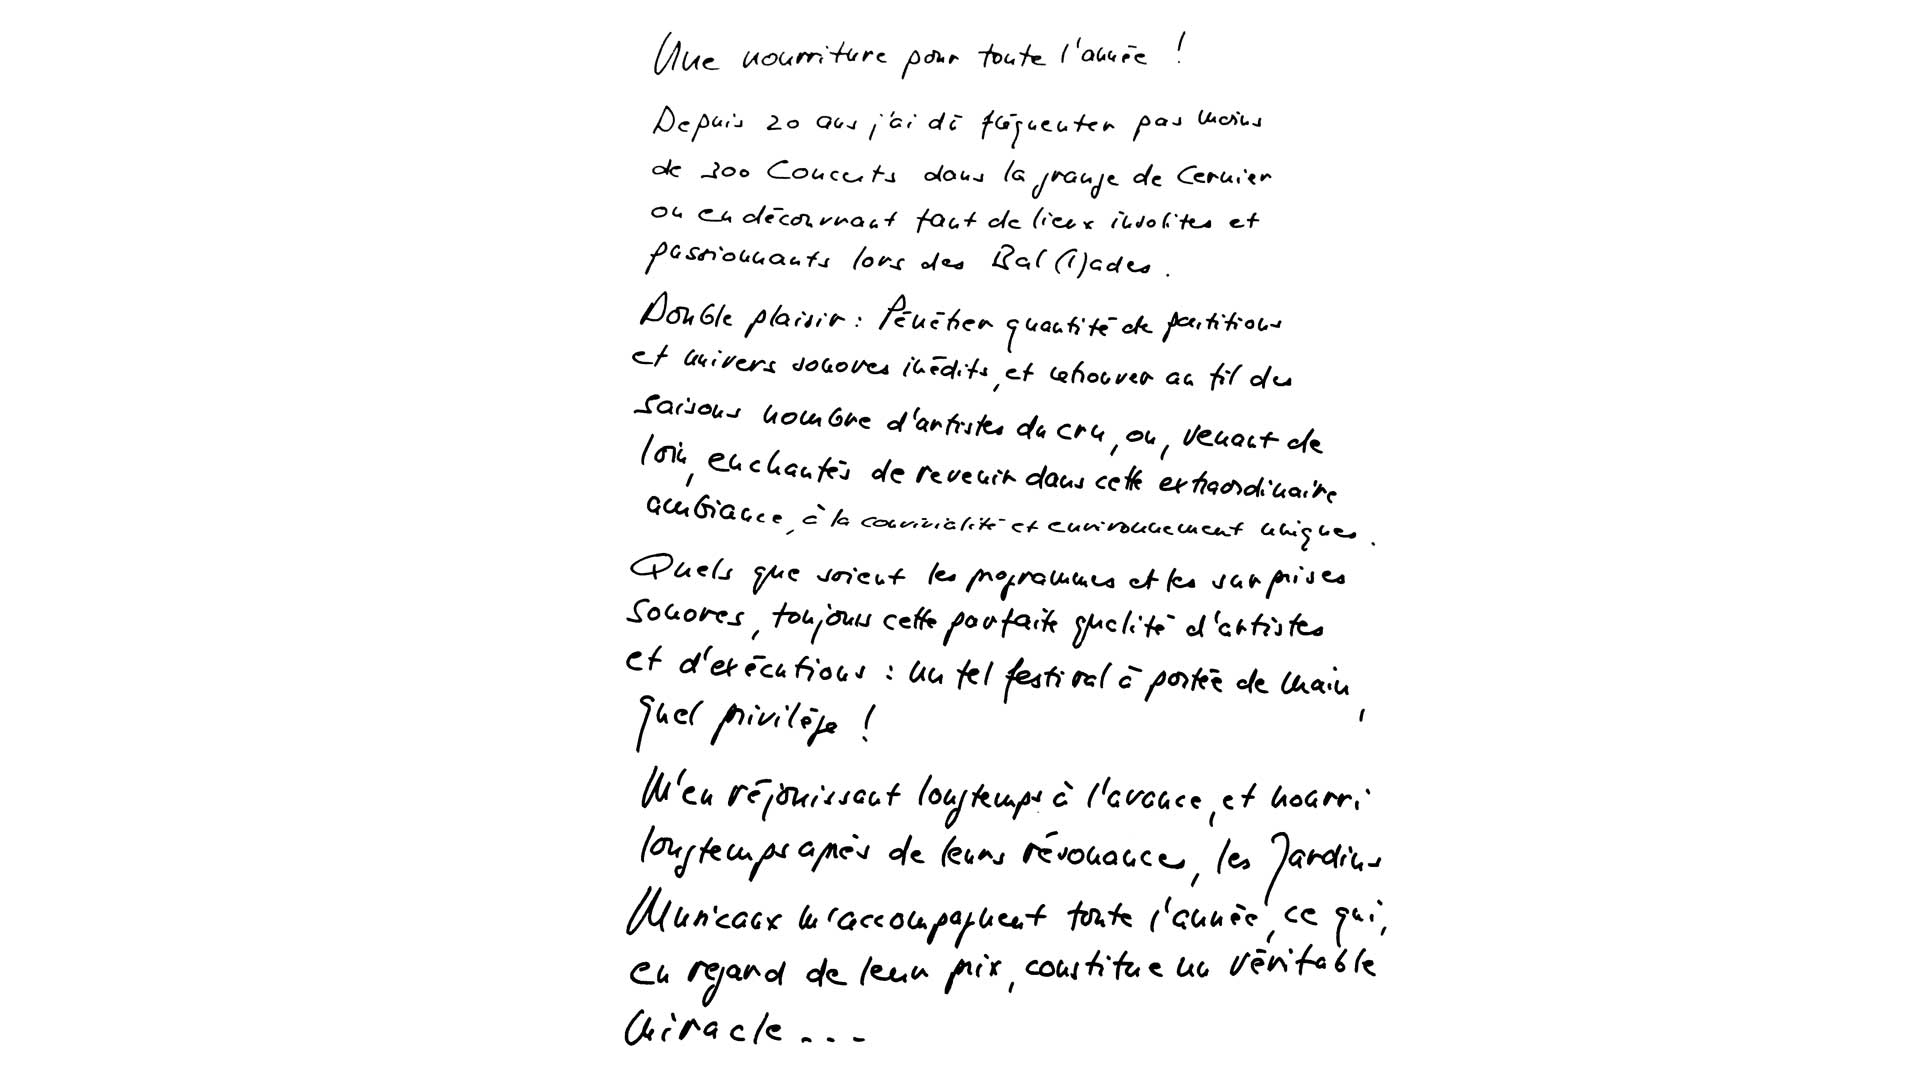 Une nourriture pour toute l'année !
Depuis 20 ans j'ai dû fréquenter pas moins
de 300 Concerts dans la grange de Cernier
ou en découvrant tant de lieux insolites et
passionnants lors des Bal(l)ades.
Double plaisir : Pénétrer quantité de partitions
et univers sonores inédits, et retrouver au fil des
saisons nombre d'artistes du cru, ou, venant de
loin, enchantés de revenir dans cette extraordinaire
ambiance, à la convivialité et environnement uniques.
Quels que soient les programmes et les surprises
sonores, toujours cette parfaite qualité d'artistes
et d'exécutions : un tel festival à portée de main,
quel privilège !
M'en réjouissant longtemps à l'avance, et nourri
longtemps après de leurs résonances, les Jardins
Musicaux m'accompagnent toute l'année, ce qui,
en regard de leur prix, constitue un véritable
miracle...